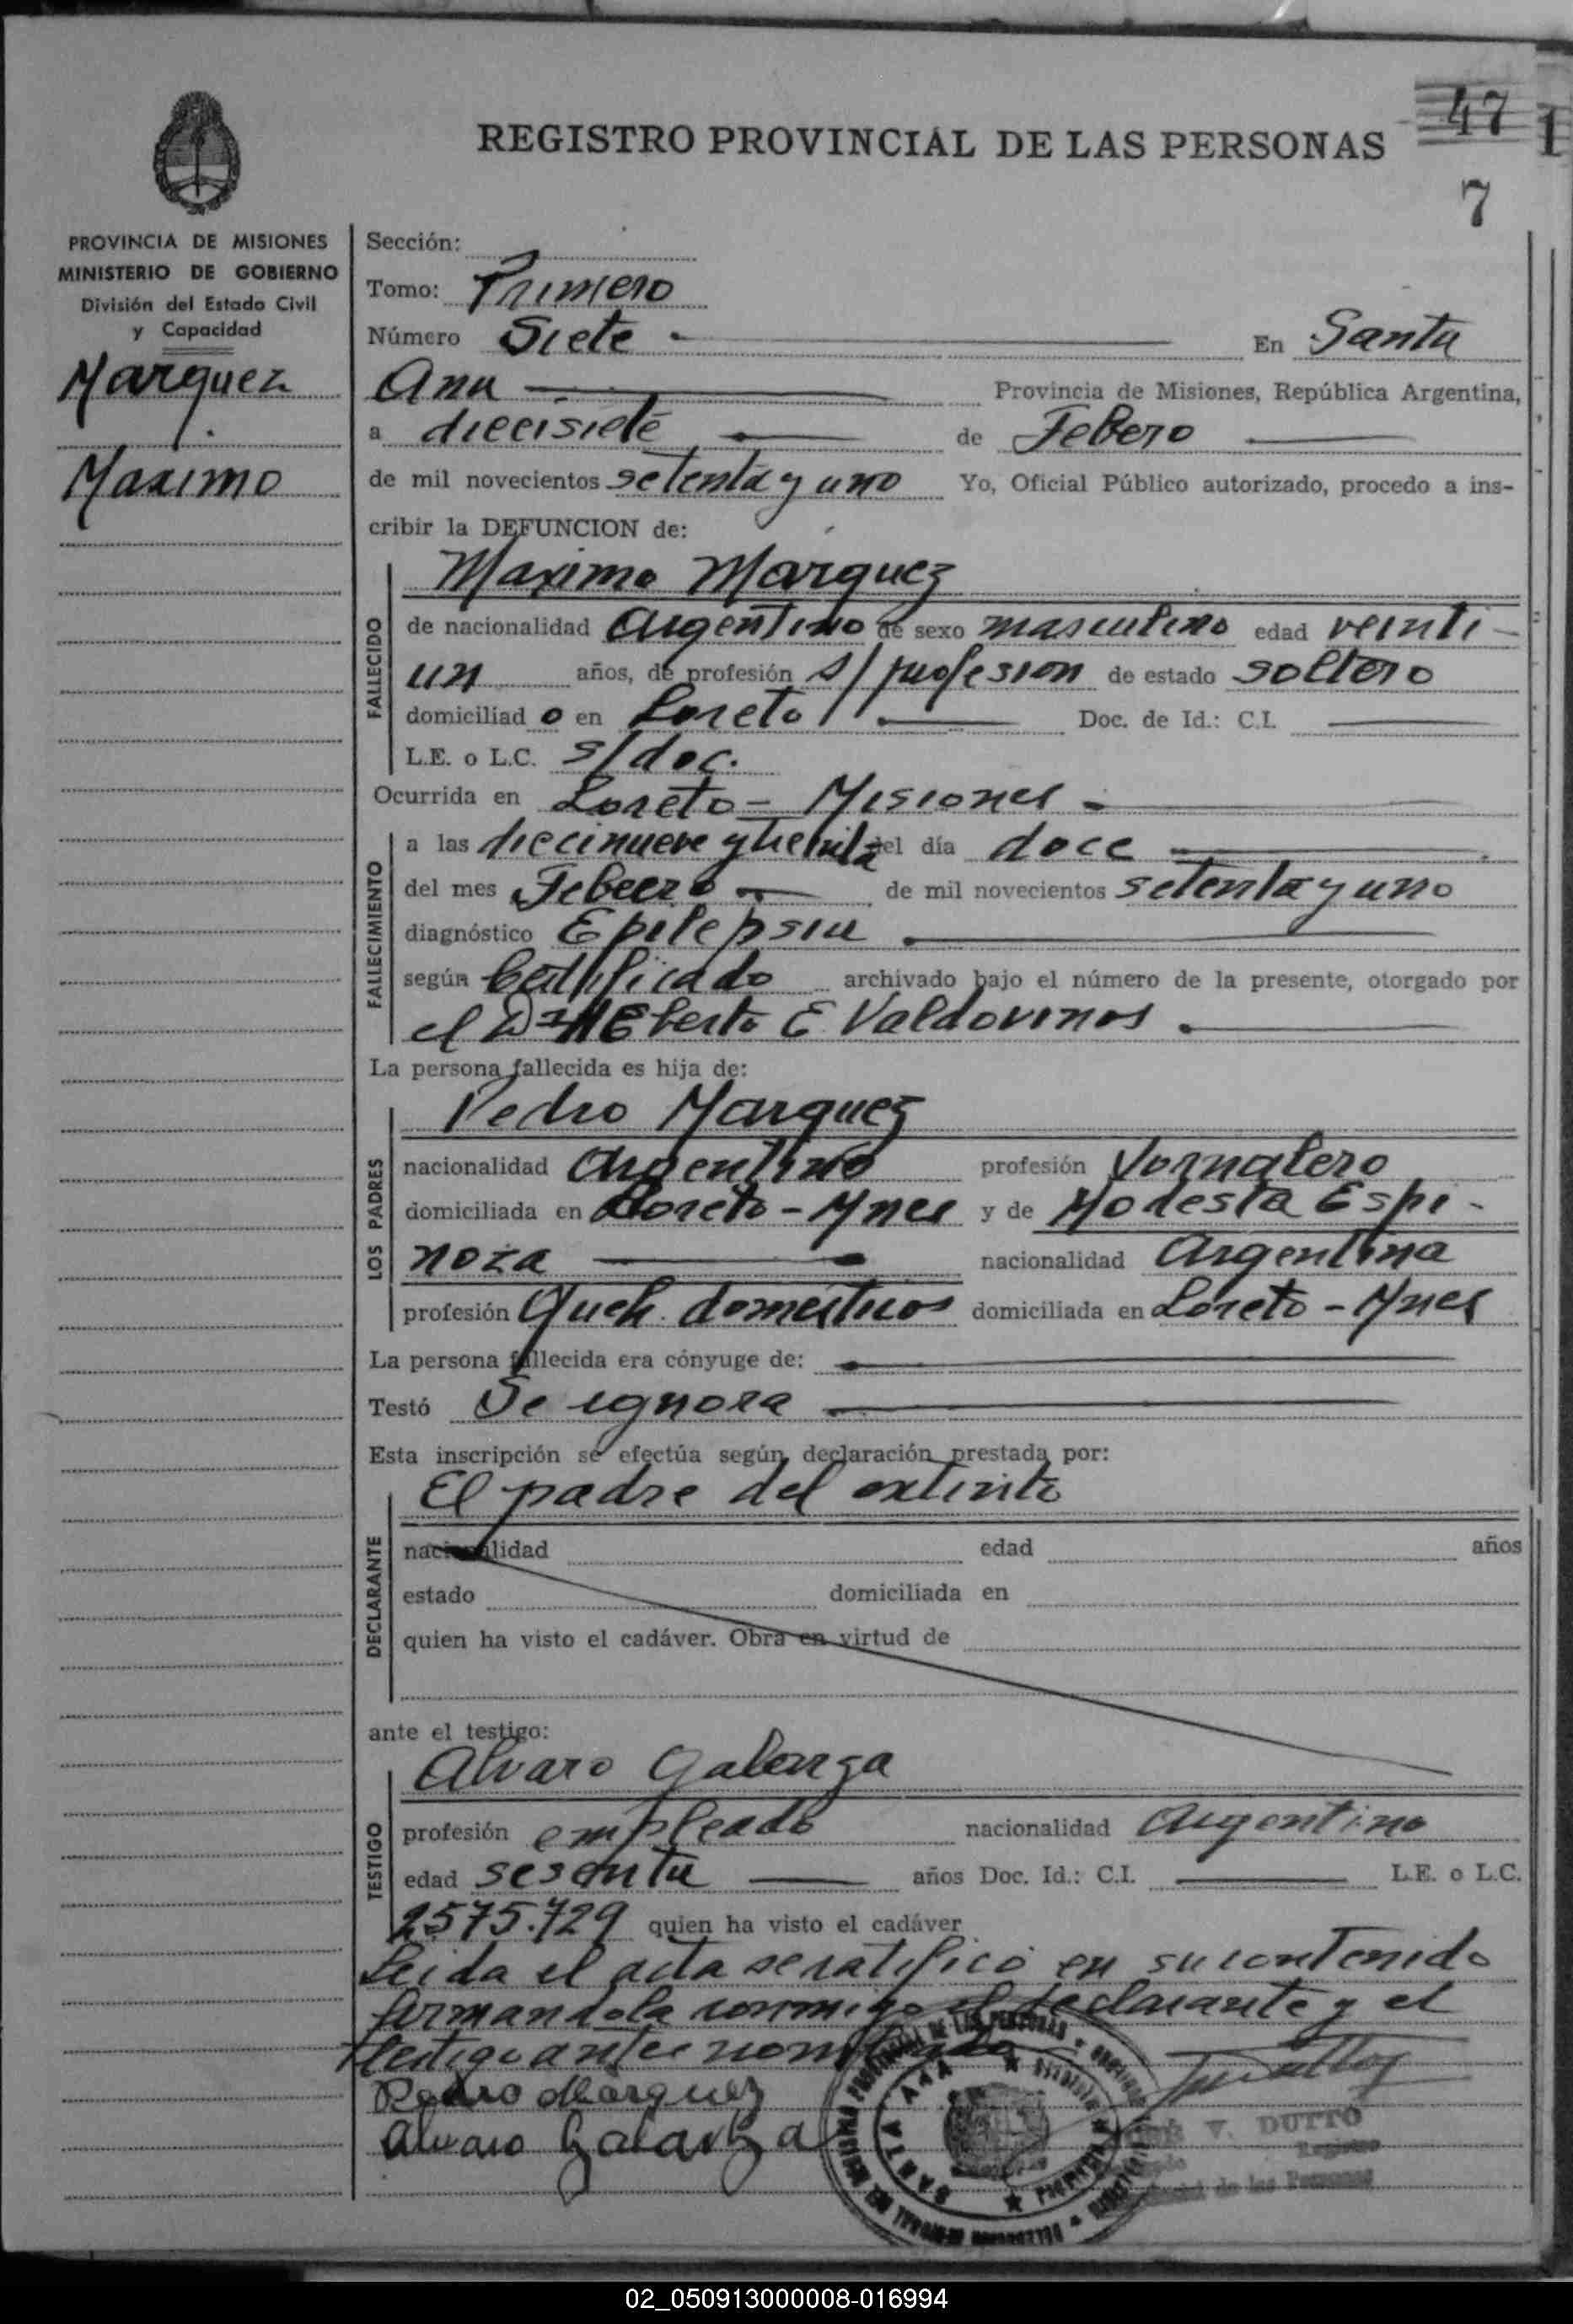 47 1
REGISTRO PROVINCIAL DE LAS PERSONAS
7
PROVINCIA DE MISIONES
MINISTERIO DE GOBIERNO
División del Estado Civil
y Capacidad
Marquez
Maximo
Sección:
Tomo: Primero
Número Siete En Santa
Ana Provincia de Misiones, República Argentina,
a diecisiete de Febero
de mil novecientos setenta y uno Yo, Oficial Público autorizado, procedo a ins-
cribir la DEFUNCION de:
FALLECIDO
Maximo Marquez
de nacionalidad Argentino de sexo masculino edad veinti-
un años, de profesión s/profesion de estado soltero
domiciliad o en Loreto Doc. de Id.: C.I.
L.E. o L.C. s/doc.
Ocurrida en Loreto - Misiones
FALLECIMIENTO
a las diecinueve y treinta del día doce
del mes Febeero de mil novecientos setenta y uno
diagnóstico Epilepsia
según Certificado archivado bajo el número de la presente, otorgado por
el Dr. Eberto E Valdovinos.
La persona fallecida es hija de:
LOS PADRES
Pedro Marquez
nacionalidad Argentino profesión Jornalero
domiciliada en Loreto - Mnes y de Modesta Espi-
noza nacionalidad Argentina
profesión Queh. domesticos domiciliada en Loreto - Mnes
La persona fallecida era cónyuge de:
Testó Se ignora
Esta inscripción se efectúa según declaración prestada por:
DECLARANTE
El padre del extinto
nacionalidad edad años
estado domiciliada en
quien ha visto el cadáver. Obra en virtud de
ante el testigo:
TESTIGO
Alvaro Galarza
profesión empleado nacionalidad Argentino
edad sesenta años Doc. Id.: C.I. L.E. o L.C.
2575.729 quien ha visto el cadáver
Leida el acta se ratifico en su contenido
firmandola conmigo el declarante y el
testigo antes nombrado
Pedro Marquez
Alvaro Galarza
SANTA ANA
V. DUTTO
de las Personas
02_050913000008-016994